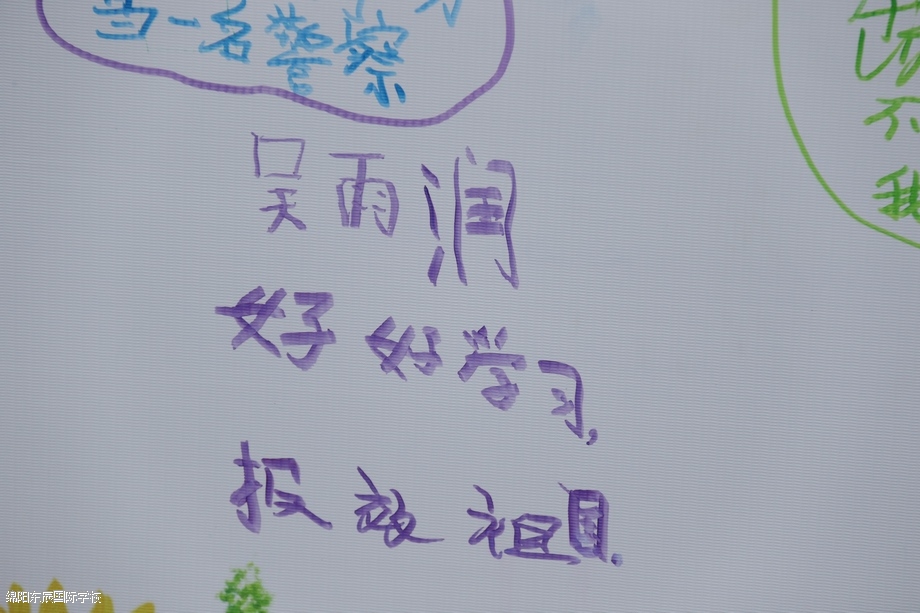 当一名警察
不
我
吴雨润
好好学习,
报效祖国.
绵阳东辰国际学校